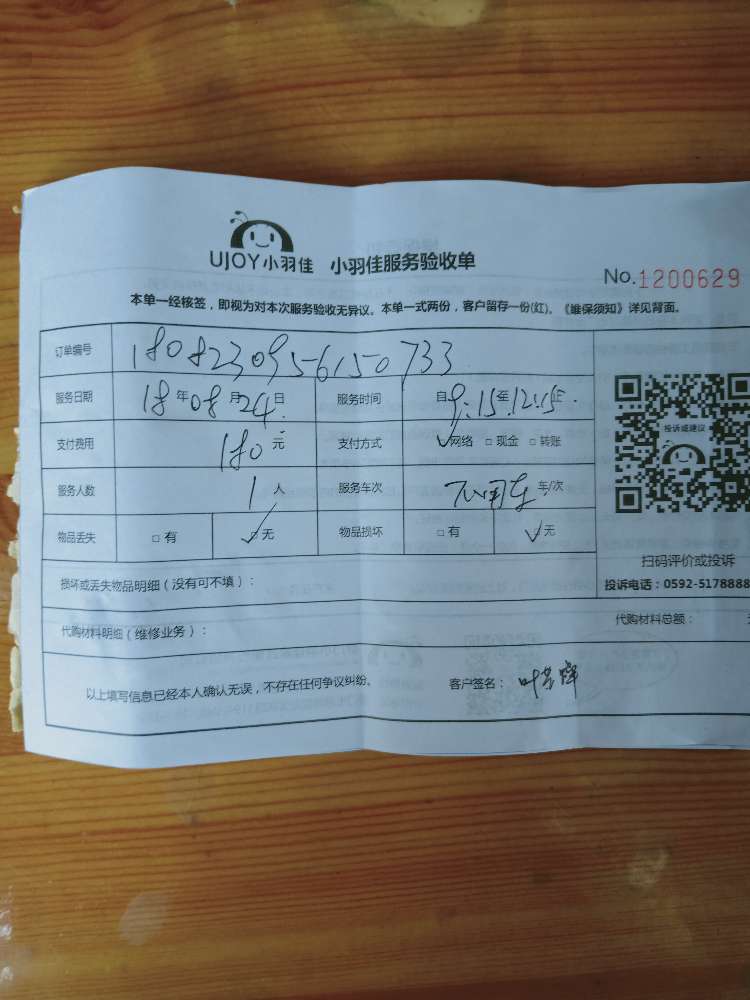 UJOY小羽佳 小羽佳服务验收单
No.1200629
本单一经核签，即视为对本次服务验收无异议。本单一式两份，客户留存一份(红)。《维保须知》详见背面。
订单编号 1808230956150733
服务日期 18年08月24日 服务时间 自9:15年12:15止.
支付费用 180元 支付方式 ✓网络 □现金 □转账
投诉或建议
服务人数 1人 服务车次 不用车 车/次
物品丢失 □有 ✓□无 物品损坏 □有 ✓□无
扫码评价或投诉
损坏或丢失物品明细（没有可不填）：
投诉电话：0592-5178888
代购材料明细（维修业务）：
代购材料总额：
以上填写信息已经本人确认无误，不存在任何争议纠纷。 客户签名：叶